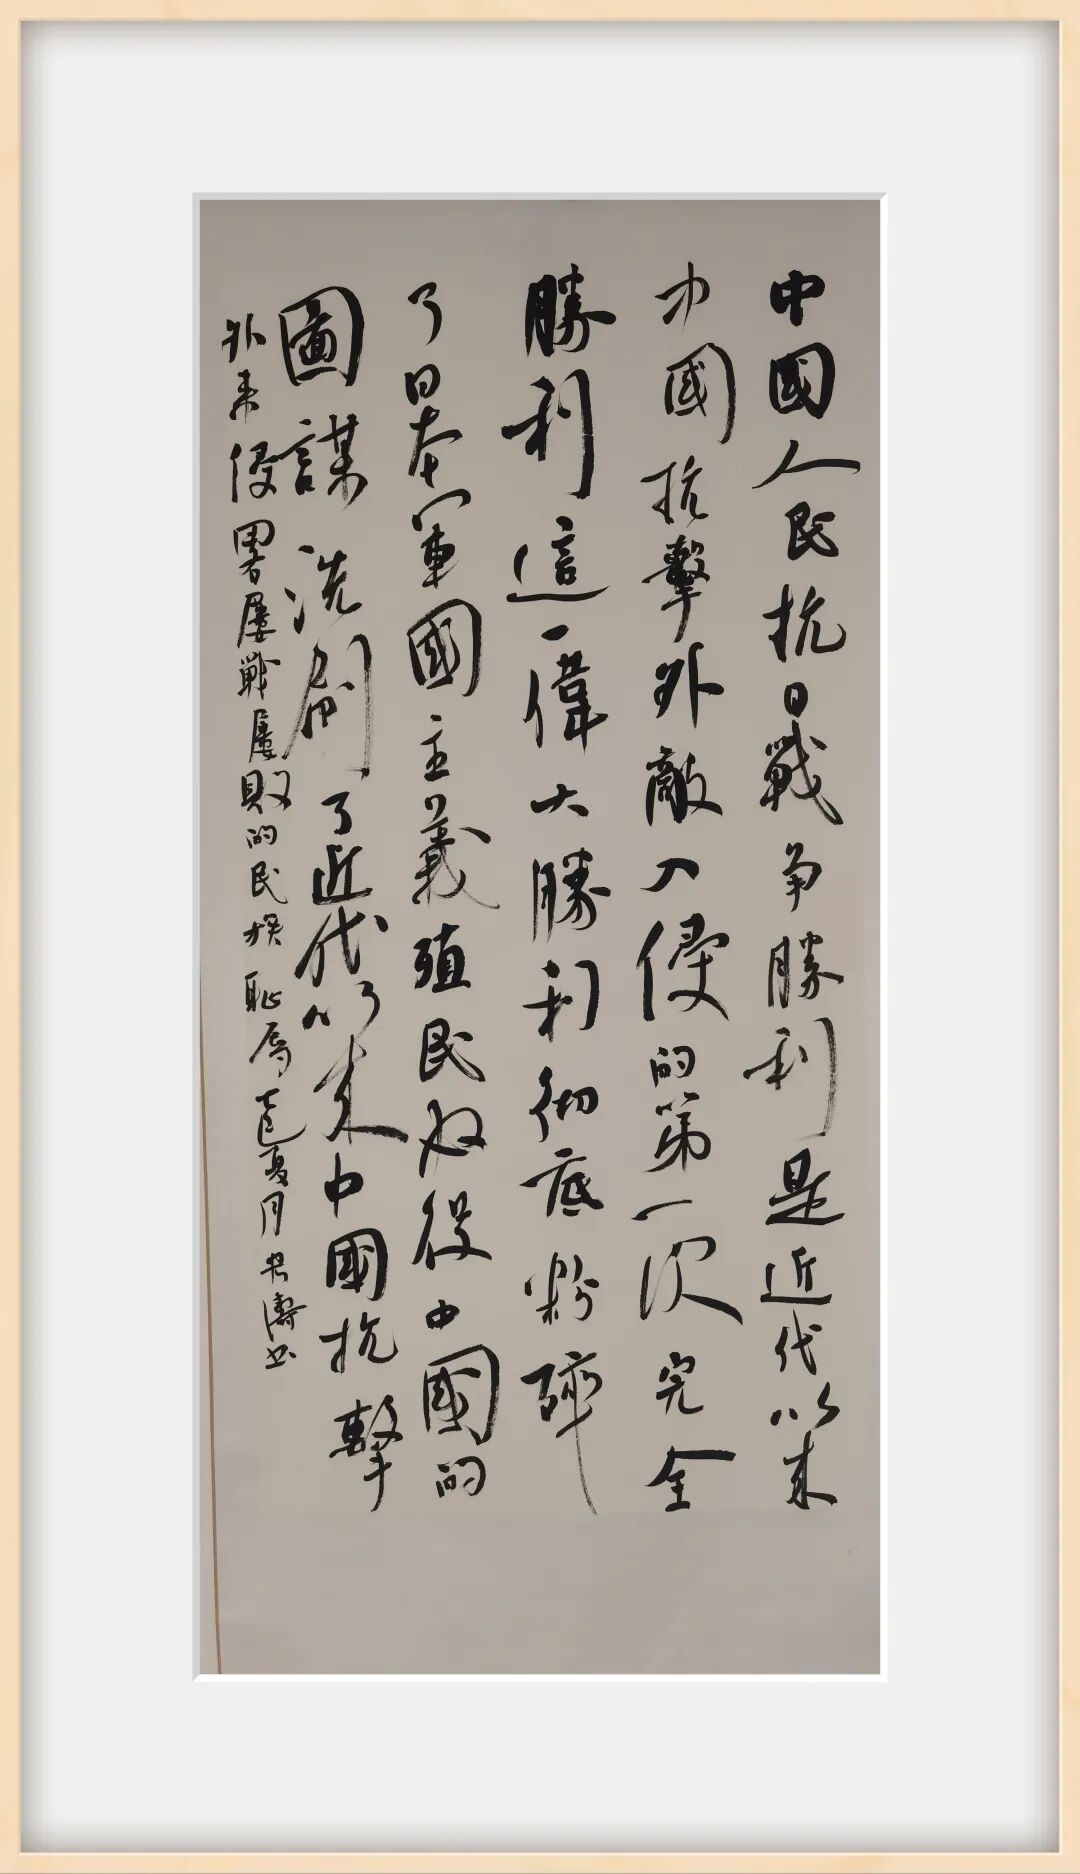 中國人民抗日戰争勝利是近代以来
中國抗擊外敵入侵的第一次完全
勝利這一偉大勝利彻底粉碎
了日本軍國主義殖民奴役中國的
圖謀洗刷了近代以来中國抗擊
外来侵畧屡戰屡敗的民族恥辱乙巳夏月濤书